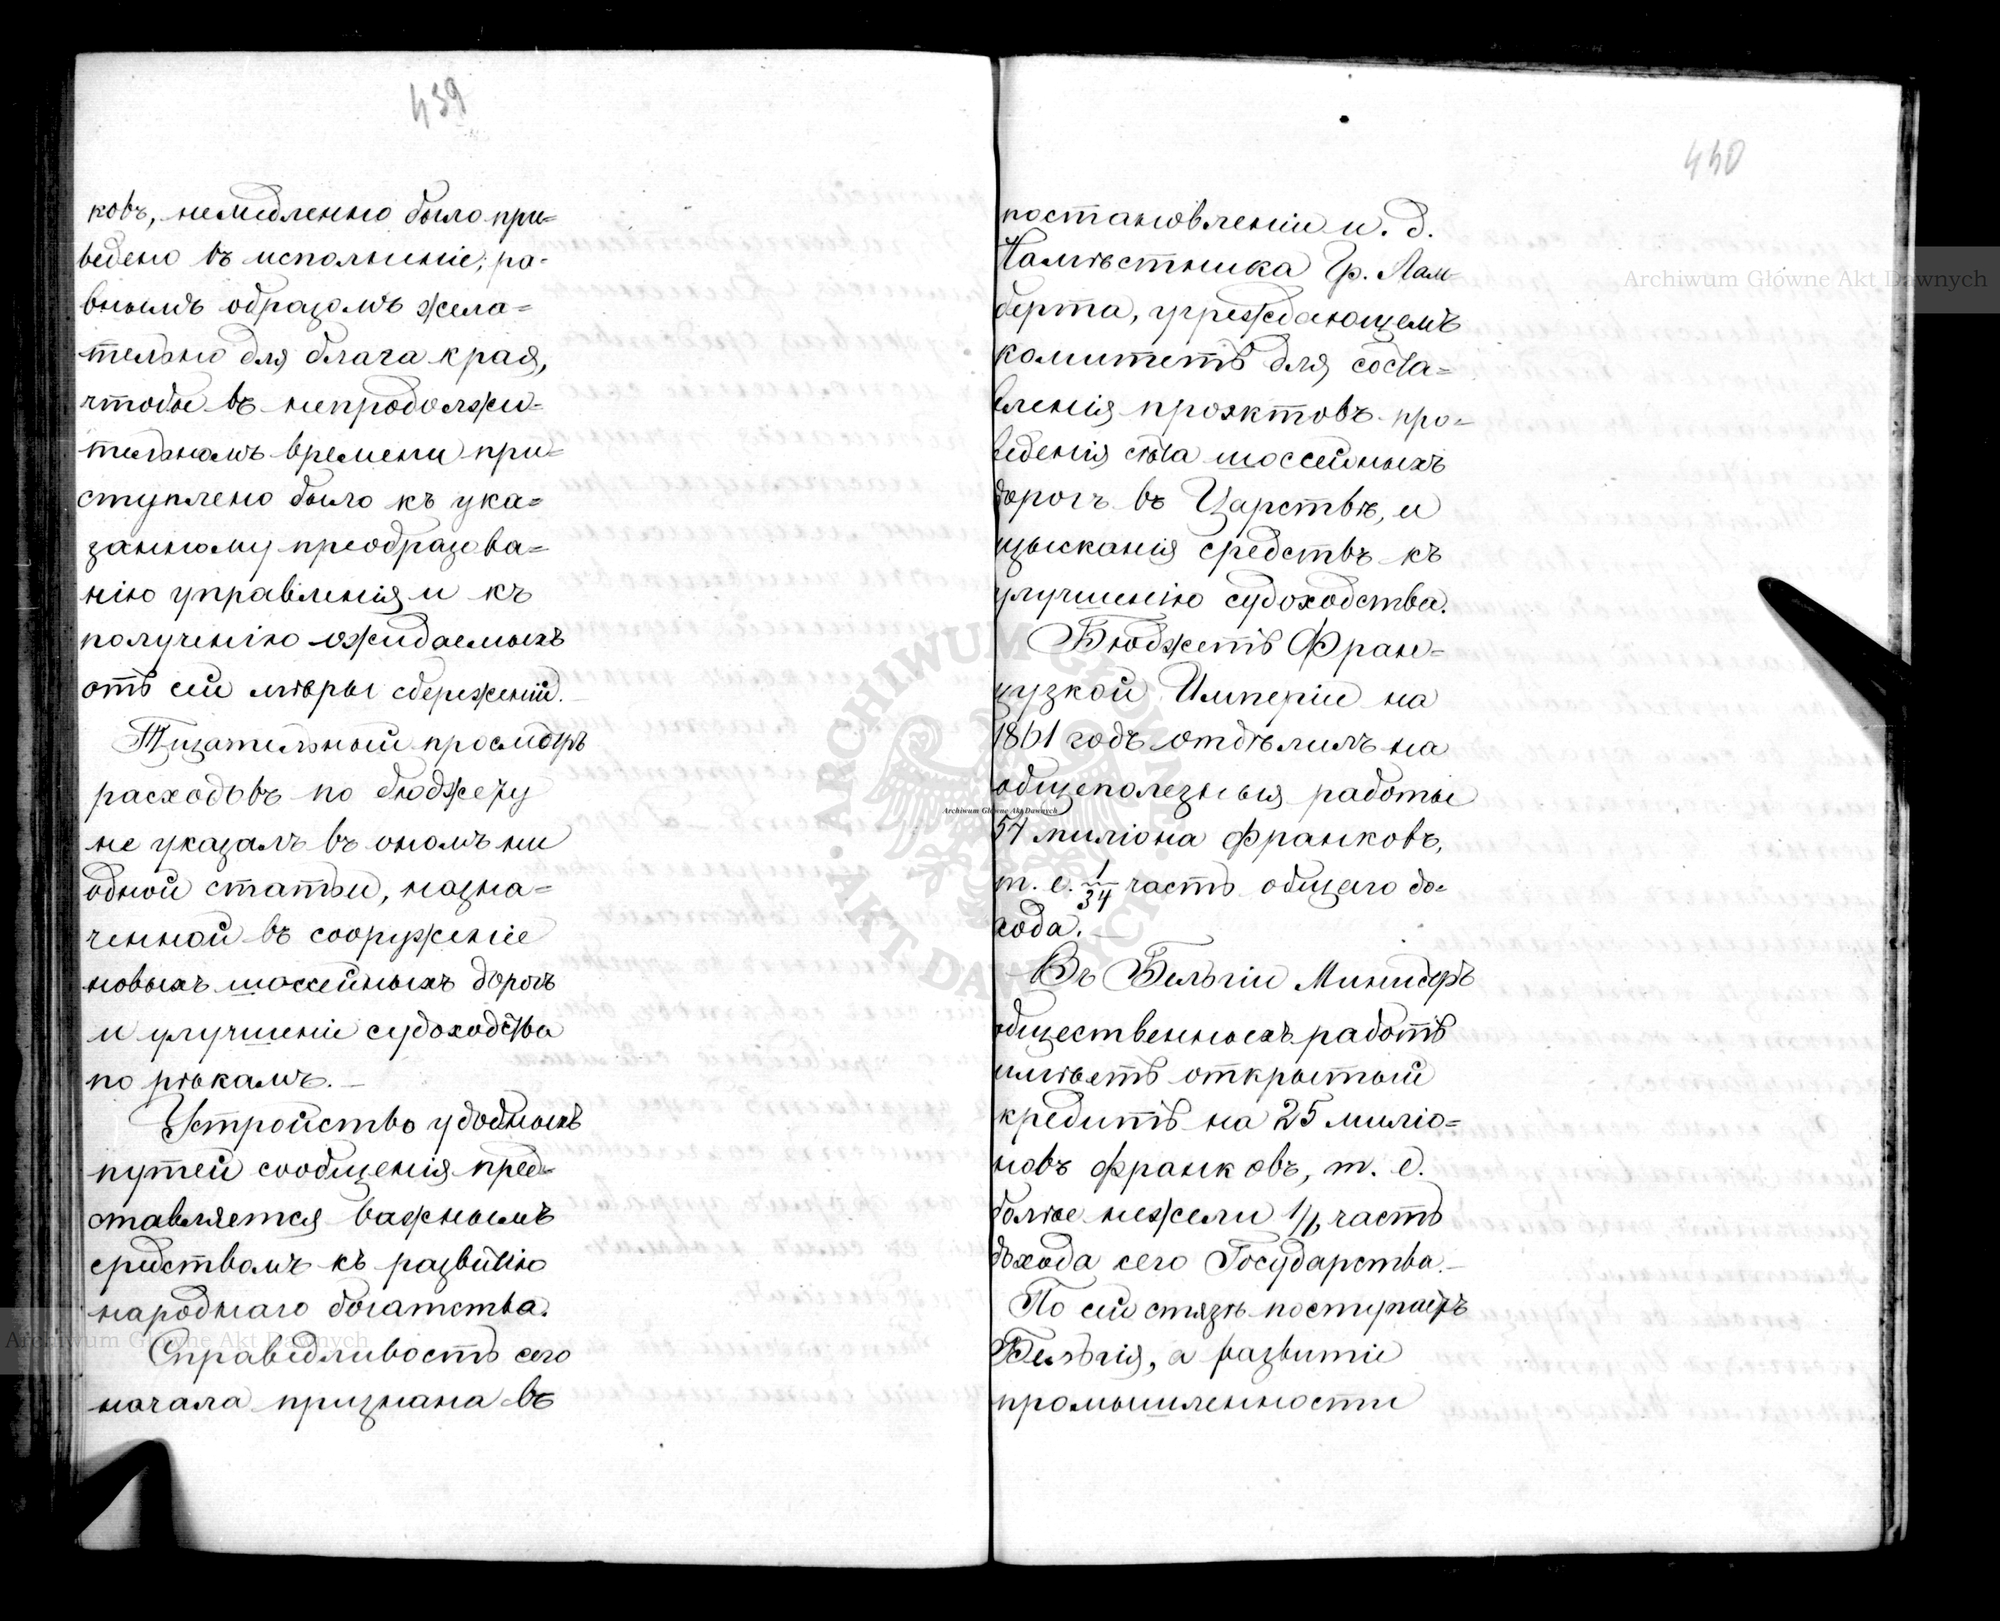 439
ковъ, немедленно было при=
ведено въ исполненіе; ра-
внымъ образомъ жела=
тельно для блага края,
чтобы въ непродолжи=
тельномъ времени при=
ступлено было къ ука=
занному преобразова=
нію управленія и къ
полученію ожидаемыхъ
отъ сей мѣры сбереженій.
Тщательный просмотръ
расходовъ по бюджету
не указалъ въ ономъ ни
одной статьи, назна=
ченной въ сооруженіе
новыхъ шоссейныхъ дорогъ
и улучшеніе судоходства
по рѣкамъ. —
Устройство удобныхъ
путей сообщенія пред=
ставляется важнымъ
средствомъ къ развитію
народнаго богатства.
Справедливость сего
начала признана въ
440
постановленіи и. д.
Намѣстника Гр. Лам=
берта, учреждающемъ
комитетъ для соста=
вленія проэктовъ про=
веденія сѣта шоссейныхъ
дорогъ въ Царствѣ, и
изысканія средствъ къ
улучшенію судоходства.
Бюджетъ Фран=
цузкой Имперіи на
1861 годъ отдѣлилъ на
общеполезныя работы
54 миліона франковъ,
т. е. 1/34 часть общаго до=
хода. —
Въ Бельгіи Министръ
общественныхъ работъ
имѣетъ открытый
кредитъ на 25 миліо=
новъ франковъ, т. е.
болѣе нежели 1/6 часть
дохода сего Государства. —
По сей стязѣ поступаетъ
Бельгія, а развитіе
промышленности
Archiwum Główne Akt Dawnych
Archiwum Główne Akt Dawnych
Archiwum Główne Akt Dawnych
ARCHIWUM GŁÓWNE AKT DAWNYCH